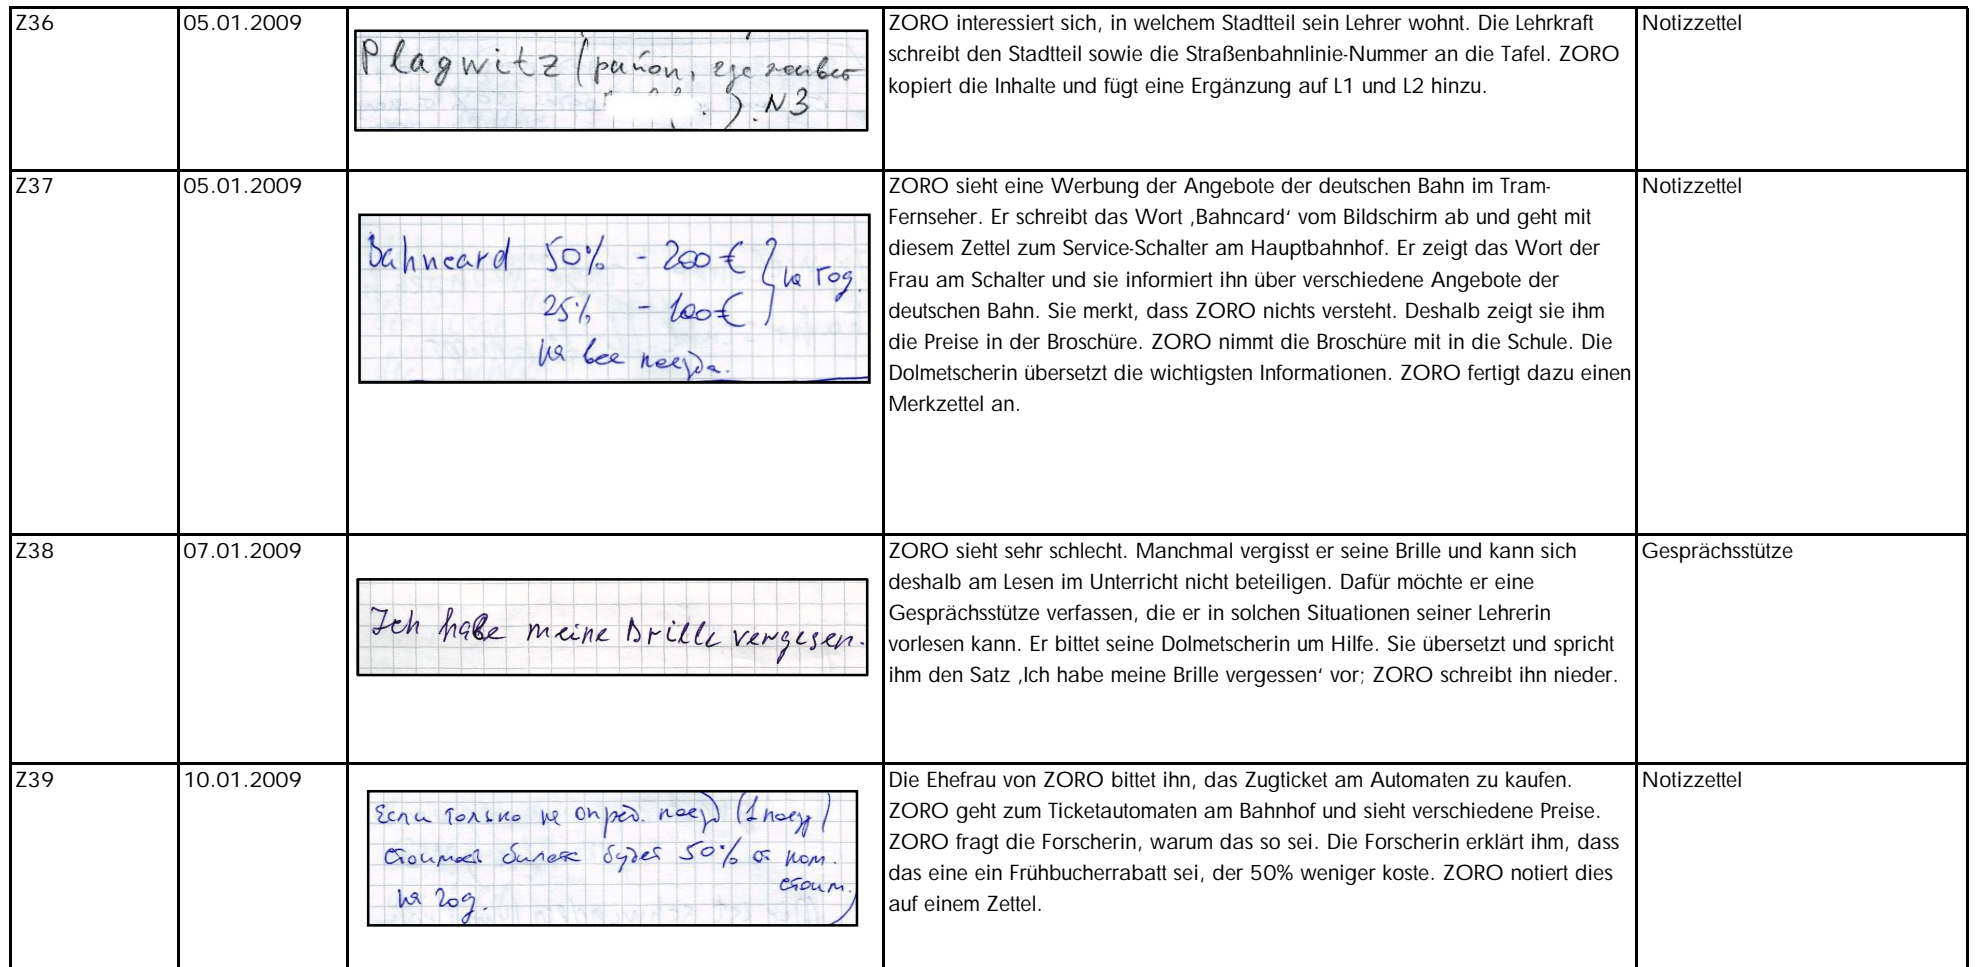 Z36
05.01.2009
Plagwitz (район, где живет
). N3
ZORO interessiert sich, in welchem Stadtteil sein Lehrer wohnt. Die Lehrkraft
schreibt den Stadtteil sowie die Straßenbahnlinie-Nummer an die Tafel. ZORO
kopiert die Inhalte und fügt eine Ergänzung auf L1 und L2 hinzu.
Notizzettel
Z37
05.01.2009
Bahncard 50% - 200 € } на год.
25% - 100 €
на все поезда.
ZORO sieht eine Werbung der Angebote der deutschen Bahn im Tram-
Fernseher. Er schreibt das Wort ‚Bahncard‘ vom Bildschirm ab und geht mit
diesem Zettel zum Service-Schalter am Hauptbahnhof. Er zeigt das Wort der
Frau am Schalter und sie informiert ihn über verschiedene Angebote der
deutschen Bahn. Sie merkt, dass ZORO nichts versteht. Deshalb zeigt sie ihm
die Preise in der Broschüre. ZORO nimmt die Broschüre mit in die Schule. Die
Dolmetscherin übersetzt die wichtigsten Informationen. ZORO fertigt dazu einen
Merkzettel an.
Notizzettel
Z38
07.01.2009
Ich habe meine Brille vergesen.
ZORO sieht sehr schlecht. Manchmal vergisst er seine Brille und kann sich
deshalb am Lesen im Unterricht nicht beteiligen. Dafür möchte er eine
Gesprächsstütze verfassen, die er in solchen Situationen seiner Lehrerin
vorlesen kann. Er bittet seine Dolmetscherin um Hilfe. Sie übersetzt und spricht
ihm den Satz ‚Ich habe meine Brille vergessen‘ vor; ZORO schreibt ihn nieder.
Gesprächsstütze
Z39
10.01.2009
Если только на опред. поезд (1 поезд)
стоимость билета будет 50% от ном.
стоим.
на год.
Die Ehefrau von ZORO bittet ihn, das Zugticket am Automaten zu kaufen.
ZORO geht zum Ticketautomaten am Bahnhof und sieht verschiedene Preise.
ZORO fragt die Forscherin, warum das so sei. Die Forscherin erklärt ihm, dass
das eine ein Frühbucherrabatt sei, der 50% weniger koste. ZORO notiert dies
auf einem Zettel.
Notizzettel